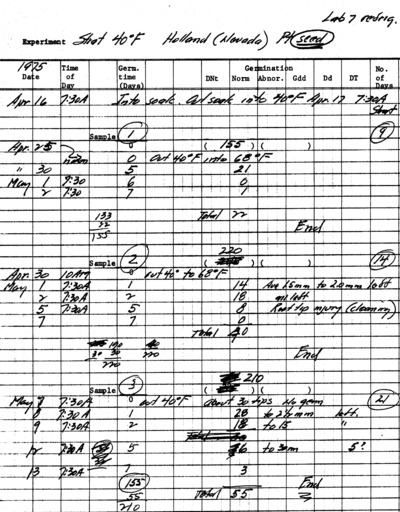 Lab 7 refrig.
Experiment Shot 40°F Holland (Nevada) P4 seed
1975 Time Germ. Germination No.
Date of time DNt Norm Abnor. Gdd Dd DT of
Day (Days) Days
Apr 16 7:30A Into soak. Out soak into 40°F Apr. 17 7:30A
Start
Sample 1 9
Apr. 25 0 ( 155 ) ( )
noon 0 Out 40°F into 68°F
" 30 5 21
May 1 7:30 6 0
2 7:30 7 1
133 Total 22
22 End
155
220
Sample 2 14
Apr. 30 10 Am 0 out 40° to 68°F
May 1 7:30A 1 14 Ave 1.5mm to 2.0mm left
2 7:30A 2 18 all left
5 7:30A 5 8 Root tip injury (cleaning)
7 7 0
Total 40
190
30 30 220 End
220
Sample 3 210 21
May 7 7:30A 0 out 40°F about 30 tips No germ
8 7:30A 1 28 to 2½mm left.
9 7:30A 2 18 to 15 "
12 7:30A 5 6 to 30m 5?
13 7:30A 7 3
155 End
55 Total 55
210